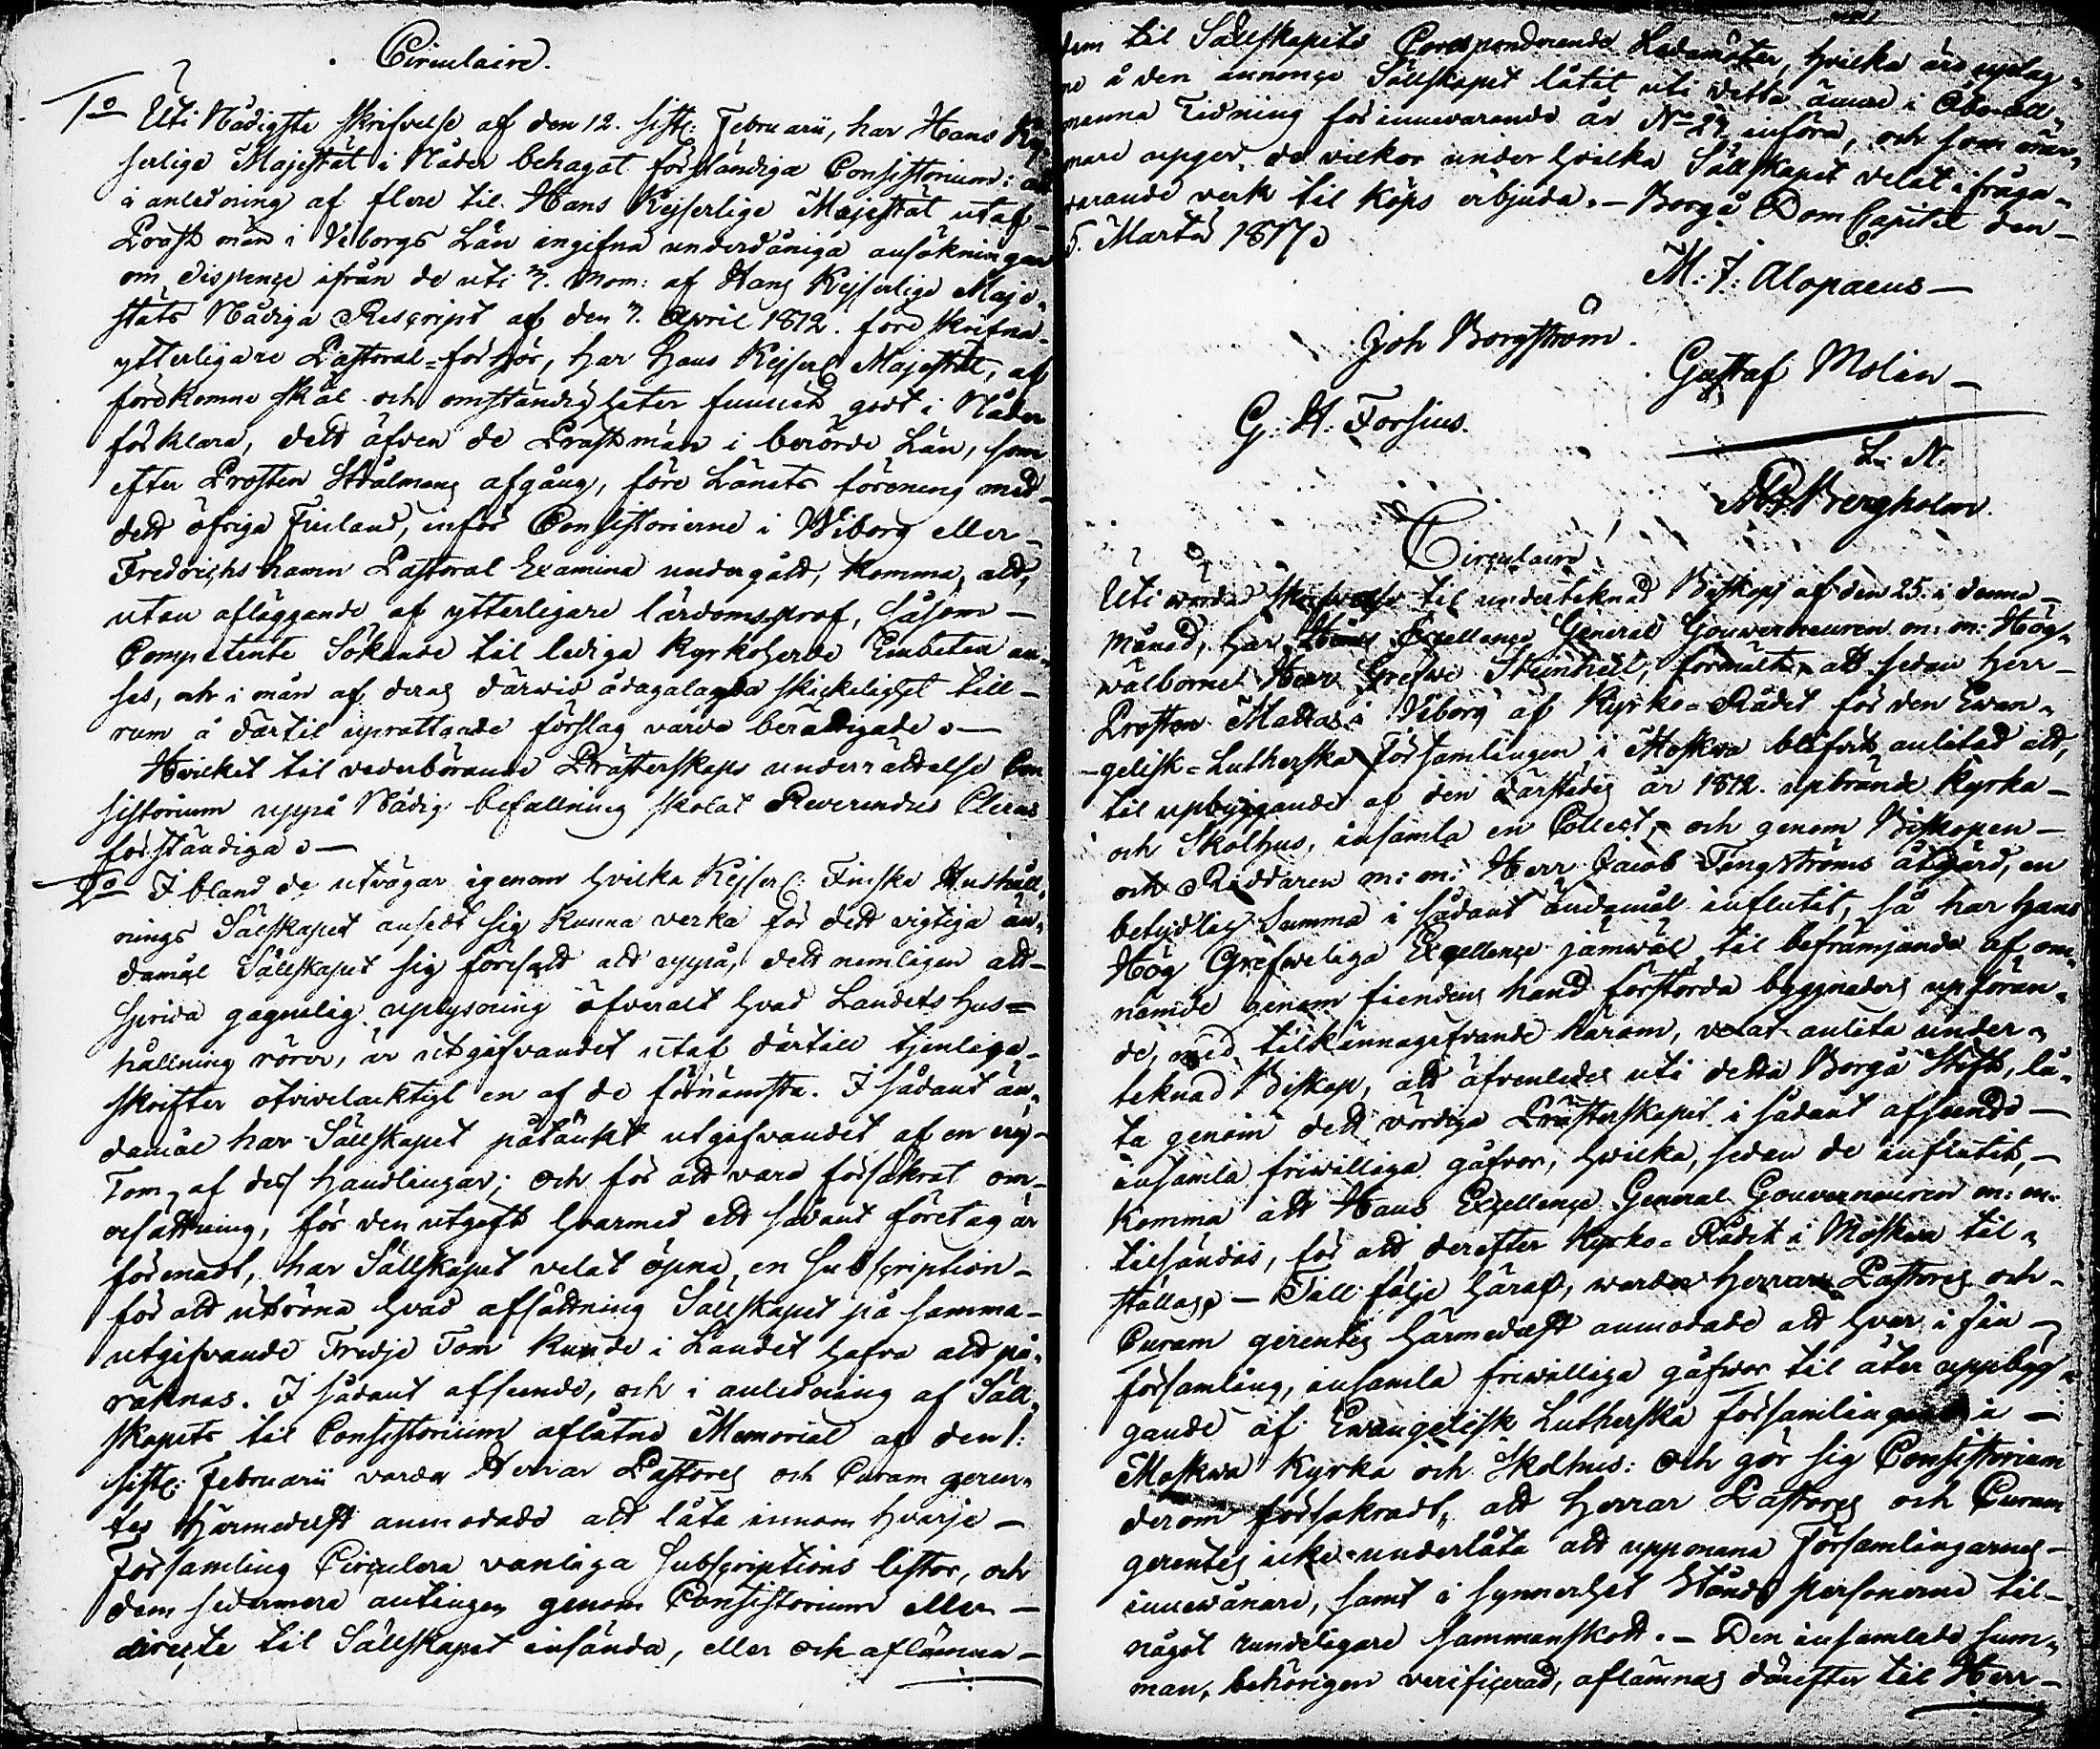 Circulaire.
1o Uti Nådigste skrifvelse af den 12. sistl: Februarii, har Hans Kej-
serlige Majestät i Nåder behagat förständiga Consistorium: att
i anledning af flere til Hans Kejserlige Majestät utaf
Prästmän i Viborgs Län ingifna underdåniga ansökningar
om dispence ifrån de uti 7. mom: af Hans Kejserlige Maje-
stäts Nådiga Rescript af den 7. April 1812. föreskrifna
ytterligare Pastoral-förhör, har Hans Kejserl: Majestät, af
förekomne skäl och omständigheter funnit godt i Nåder
förklara, dett äfven de Prästmän i berörde Län, som
efter Prosten Stråhlmans afgång, före Länets förening med
dett öfriga Finland, inför Consistorierne i Wiborg eller
Fredrichshamn Pastoral Examina undergådt, komma, att,
utan afläggande af ytterligare lärdomsprof, såsom –
Competente Sökande til lediga Kyrkoherde Embeten an-
ses, och i mån af deras därvid ådagalagda skickelighet till-
rum å därtil uprättande förslag varda berättigade. –
Hvilket til vederbörande Prästerskaps underrättelse Con
sistorium uppå Nådig befallning skolat Reverendus Clerus
förständiga. –
2o I bland de utvägar igenom hvilka Kejserl: Finska Hushåll-
nings Sälskapet ansedt sig kunna verka för dett vigtiga än-
damål Sällskapet sig föresatt att uppå, dett nemligen att
sprida gagnelig uplysning öfveralt hvad Landets Hus=
hållning rörer, är utgifvandet utaf därtill tjenliga
skrifter otvivelacktigt en af de förnämsta. I sådant än-
damål har Sällskapet påtänkt utgifvandet af en ny
Tom af dess handlingar; och för att vara försäkrat om
ersättning, för den utgift hvarmed ett sådant företag är
förenadt, har Sällskapet velat öpna en subscription
för att utröna hvad afsättning Sällskapet på samma
utgifvande Tredje Tom kunde i Landet hafva att på-
räknas. I sådant afseende, och i anledning af Säll-
skapets til Consistorium aflåtne Memorial af den 1:
sistl: Februarii varda Herrar Pastores och Curam geren-
tes härmedelst anmodade att låta innom hvarje –
Församling Circulera vanliga Subscriptions listor, och
dem sedermera antingen genom Consistorium eller –
directe til Sällskapet insända, eller och aflämna –
dem til Sällskapets Correspondrande Ledamöter, hvilka äro uptag-
ne å den annonce Sällskapet låtit uti detta ämne i Åbo all-
männa Tidning för innevarande år No 27. införa, och som när-
mare upger de vilkor under hvilka Sällskapet velat ifråga-
varande verk til köps erbjuda. – Borgå Dom Capitel den –
5. Martii 1817.
M: J: Alopaeus –
Joh Borgström.
Gustaf Molin –
G: H: Forsius.
L: N.
Bergholm.
Circulaire
Uti wördad skrifwelse til underteknad Biskop af den 25. i denna
månad, har Hans Excellence General Gouverneuren m: m: Hög-
wälborne Herr Grefve Steinheil, förmält, att sedan Herr –
Prosten Mattas i Viborg af Kyrko-Rådet för den Evan-
gelisk-Lutherska församlingen i Moskva blifvit anlitad att,
til upbyggandet af den därstädes år 1812. upbrände Kyrka –
och Skolhus, insamla en Collect, och genom Biskopen –
och Riddaren m: m: Herr Jacob Tengströms åtgärd, en
betydlig Summa i sådant ändamål influtit, så har Hans
Hög Grefveliga Excellence jämväl, til befrämjande af om-
nämde genom fiendens hand förstörda byggnaders upföran-
de, med tilkännagifvande häraf, velat anlita under-
teknad Biskop, att äfvenledes uti detta Borgå Stift, lå-
ta genom dett vördiga Prästerskapet i sådant afseende –
insamla friwilliga gåfvor, hvilka, sedan de influtit, –
komma att Hans Excellence General Gouverneuren m: m:
tilsändas, för att derefter Kyrko-Rådet i Moskva til-
ställas. – Till följe häraf, warda Herrar Pastores och
Curam gerentes härmedelst anmodade att hvar i sin –
församling, insamla friwilliga gåfvor til åter uppbyg-
gande af Ewangelisk Lutherska församlingens i –
Moskwa Kyrka och Skolhus: och gör sig Consistorium
derom försäkradt, att Herrar Pastores och Curam
gerentes icke underlåta att uppmana Församlingarnes
innevånare, samt i synnerhet Stånds personerne til –
något rundeligare sammanskott. – Den insamlade sum-
man, behörigen verificerad, aflämnas därefter til Herr –